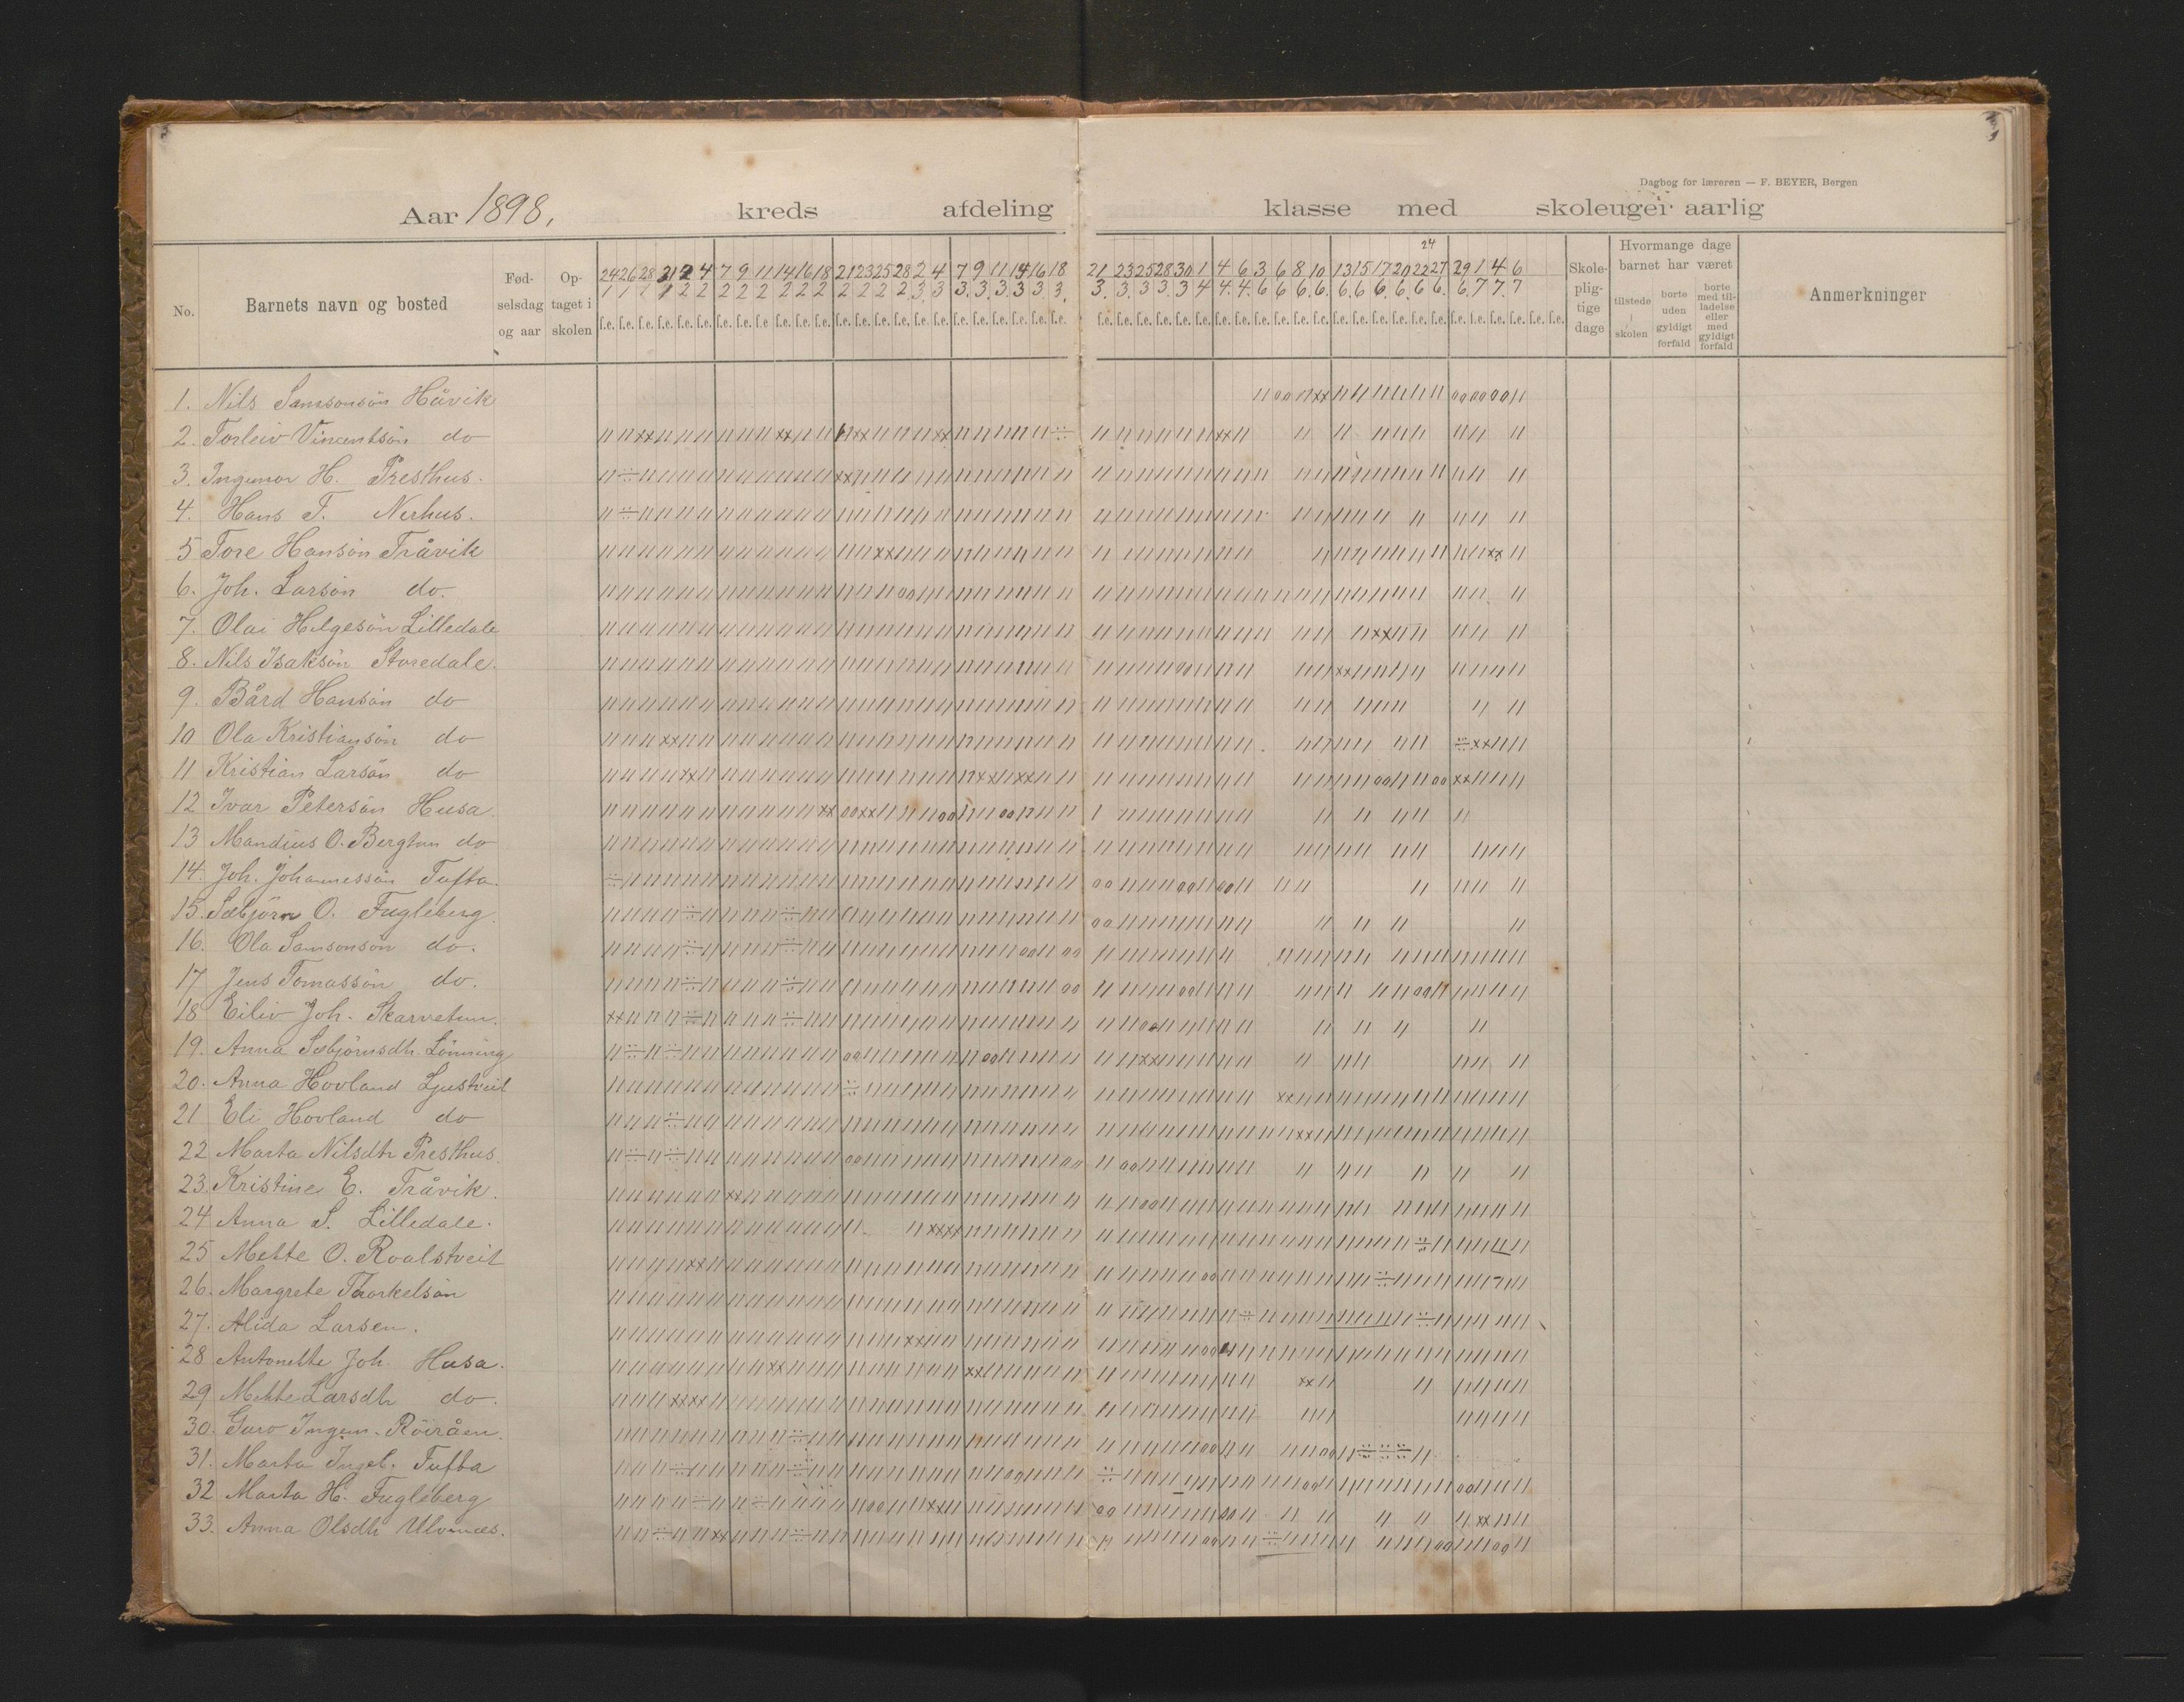 Dagbog for læreren — F. BEYER, Bergen
Aar 1898. kreds afdeling klasse med skoleuger aarlig
No. Barnets navn og bosted Fødselsdag og aar Optaget i skolen Skolepligtige dage Hvormange dage barnet har været tilstede i skolen borte uden gyldigt forfald borte med tilladelse eller med gyldigt forfald Anmerkninger
24
24 26 28 31 2 4 7 9 11 14 16 18 21 23 25 28 2 4 7 9 11 14 16 18 21 23 25 28 30 1 4 6 3 6 8 10 13 15 17 20 22 27 29 1 4 6
1 1 1 1 2 2 2 2 2 2 2 2 2 2 2 2 3 3 3 3 3 3 3 3 3 3 3 3 3 4 4 4 6 6 6 6 6 6 6 6 6 6 6 7 7 7
f.e. f.e. f.e. f.e. f.e. f.e. f.e. f.e. f.e. f.e. f.e. f.e. f.e. f.e. f.e. f.e. f.e. f.e. f.e. f.e. f.e. f.e. f.e. f.e. f.e. f.e. f.e. f.e. f.e. f.e. f.e. f.e. f.e. f.e. f.e. f.e. f.e. f.e. f.e. f.e. f.e. f.e. f.e. f.e. f.e. f.e. f.e. f.e.
1. Nils Samsonsön Håvik
2. Torleiv Vincentsön do
3. Ingemor H. Presthus.
4. Hans T. Nerhus.
5 Tore Hansön Tråvik
6. Joh. Larsön do.
7. Olai Helgesön Lilledale
8. Nils Isaksön Storedale.
9. Bård Hansön do
10 Ola Kristiansön do
11 Kristian Larsön do
12 Ivar Petersön Husa.
13 Mandius O. Bergtun do
14. Joh. Johannessön Tufta.
15. Sæbjörn O. Fugleberg.
16. Ola Samsonsön do.
17 Jens Tomassön do.
18 Eiliv Joh. Skarvetun.
19. Anna Sæbjörnsdtr. Lönning
20. Anna Hovland Ljustveit
21 Eli Hovland do
22 Marta Nilsdtr Presthus.
23. Kristine E. Tråvik.
24 Anna S. Lilledale.
25 Mette O. Roalstveit
26. Margrete Thorkelsön
27. Alida Larsen.
28 Antonette Joh. Husa.
29 Mette Larsdtr do.
30. Guro Ingem. Röiråen.
31. Marta Ingeb. Tufta
32 Marta H. Fugleberg
33. Anna Olsdtr Ulvenæs.